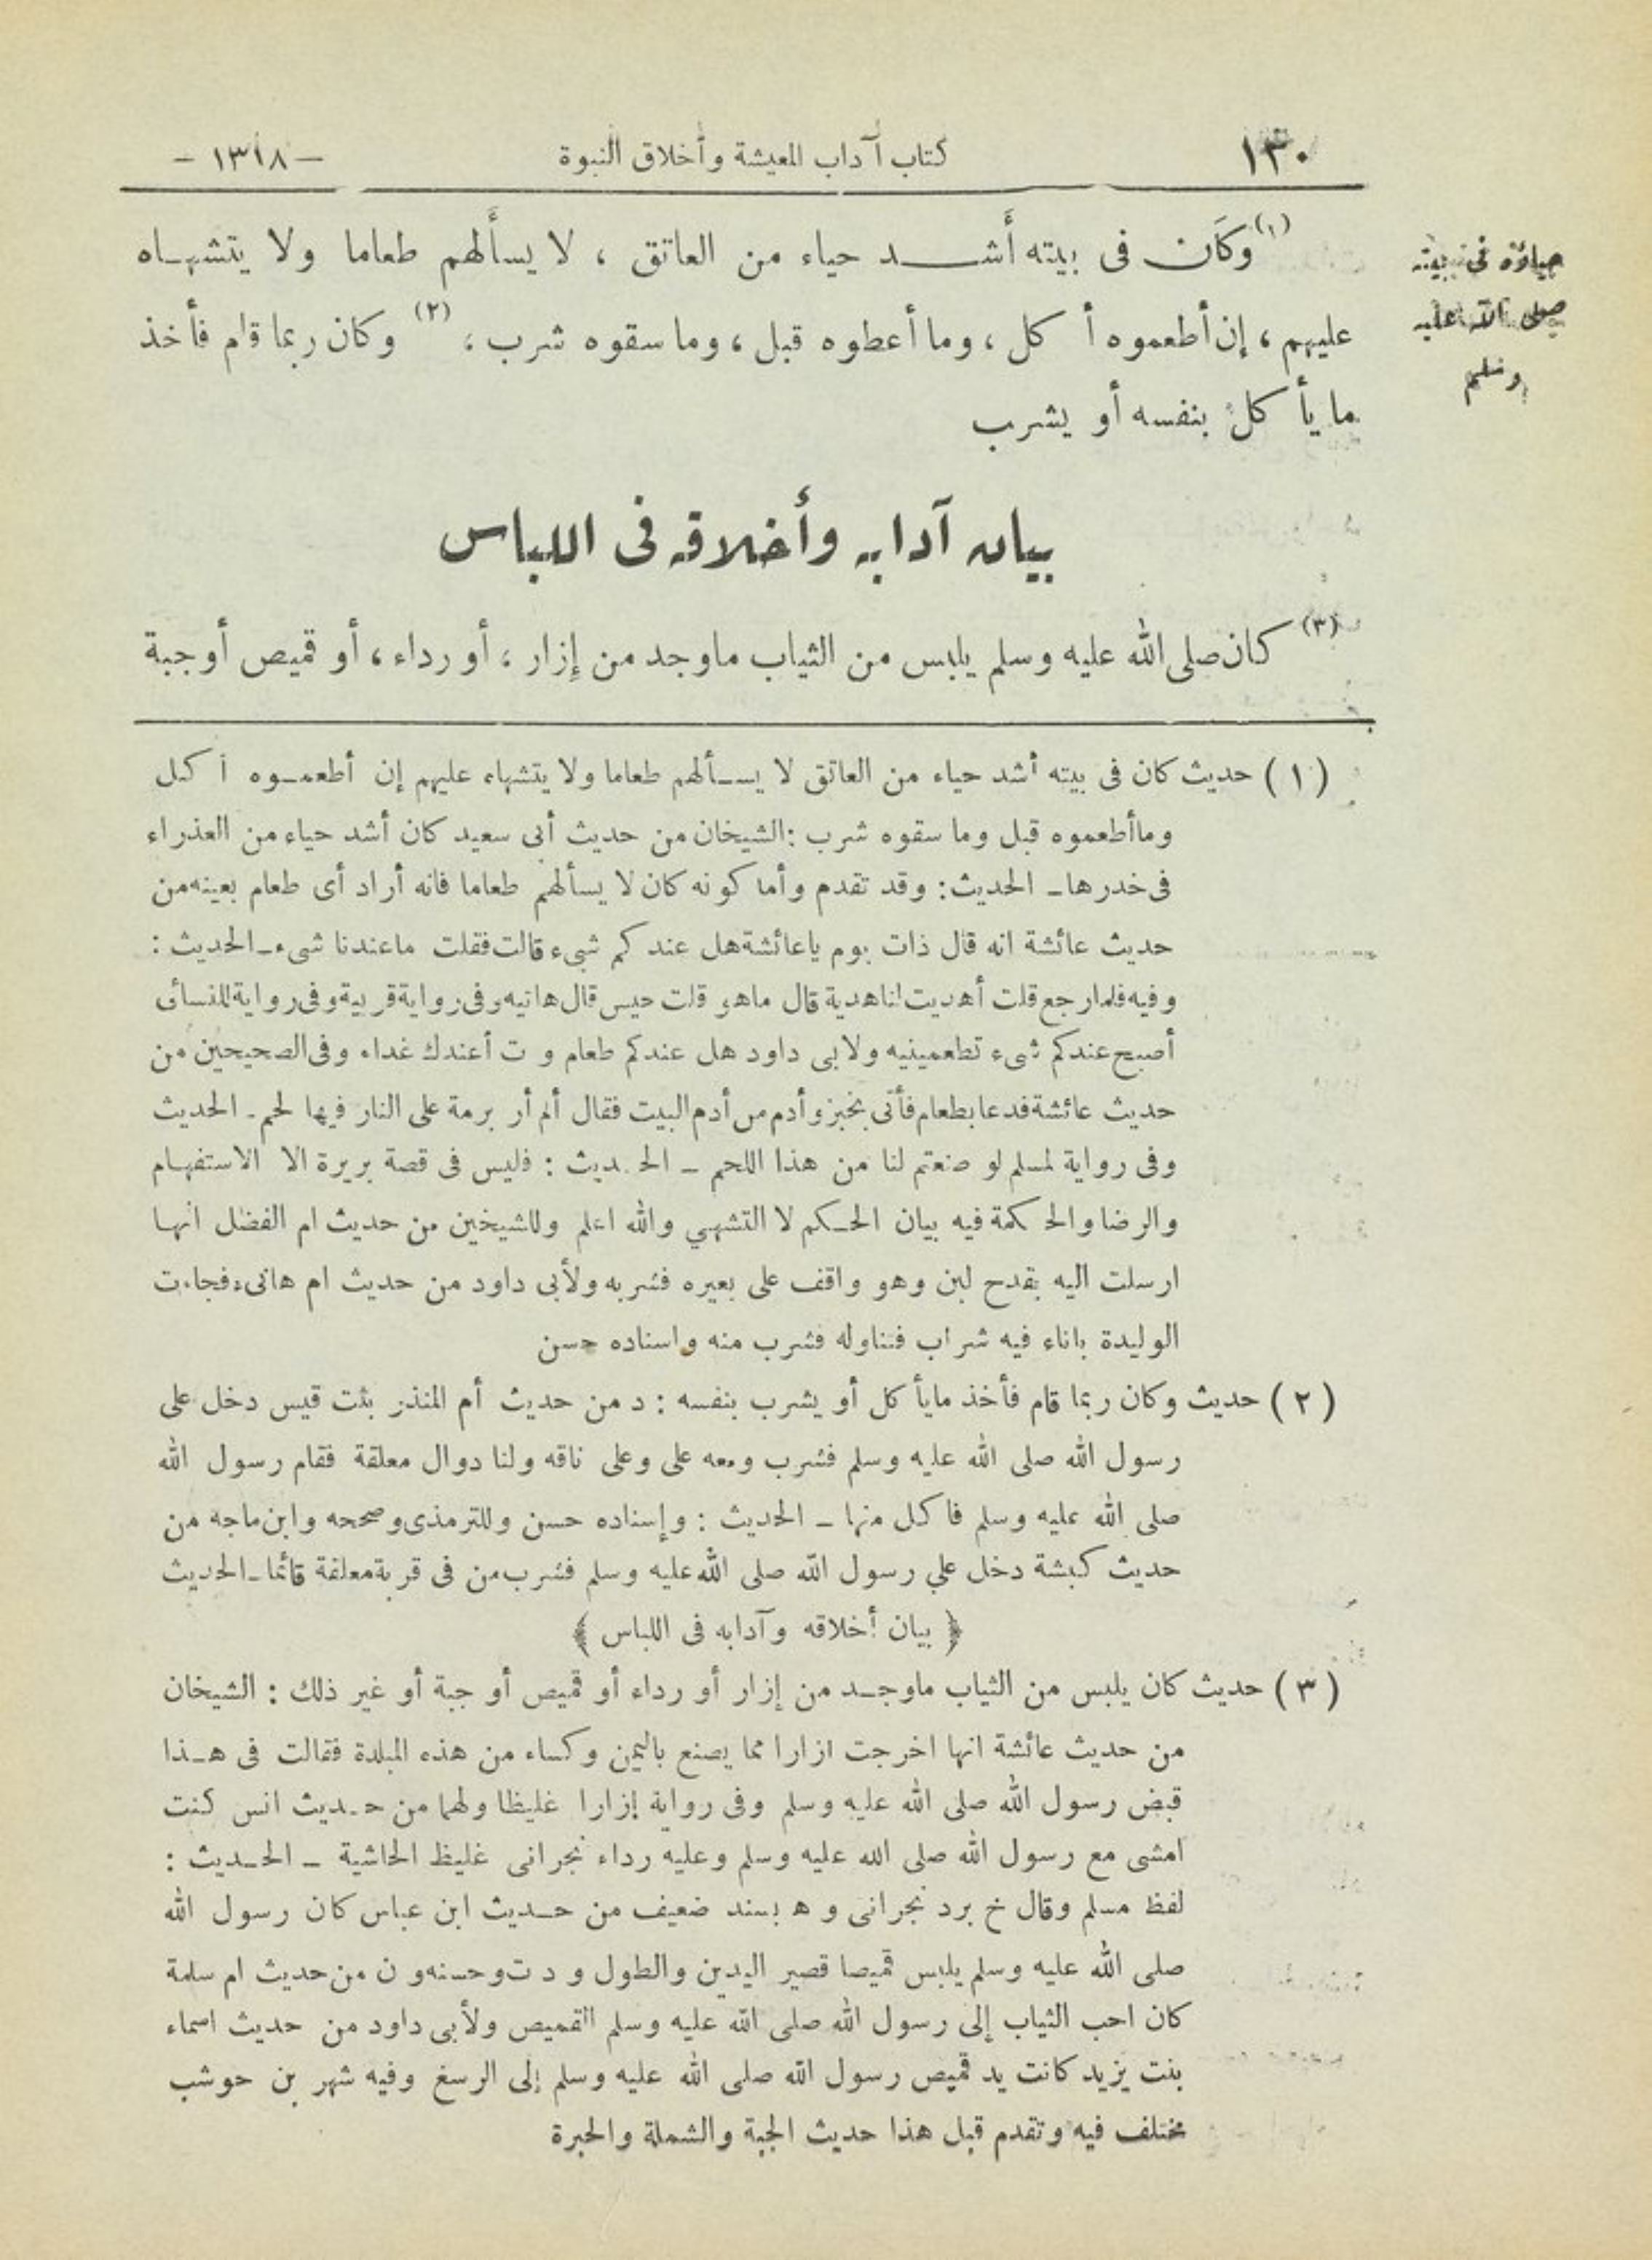 ١٣٠ كتاب آداب المعيشة وأخلاق النبوة — ١٣١٨ —
حياؤه فى بيته
صلى الله عليه
وسلم
(١) وكَان فى بيته أَشد حياء من العاتق ، لا يسأَلهم طعاما ولا يتشهاه
عليهم ، إن أطعموه أكل ، وما أعطوه قبل ، وما سقوه شرب ، (٢) وكان ربما قام فأخذ
ما يأكل بنفسه أو يشرب
بيان آدابه وأخلاقه فى اللباس
(٣) كان صلى الله عليه وسلم يلبس من الثياب ماوجد من إزار ، أو رداء ، أو قميص أو جبة
( ١ ) حديث كان فى بيته أشد حياء من العاتق لا يسألهم طعاما ولا يتشهاه عليهم إن أطعموه أكل
وماأطعموه قبل وما سقوه شرب : الشيخان من حديث أبى سعيد كان أشد حياء من العذراء
فى خدرها ـ الحديث : وقد تقدم وأما كونه كان لا يسألهم طعاما فانه أراد أى طعام بعينه من
حديث عائشة انه قال ذات يوم ياعائشة هل عندكم شىء قالت فقلت ماعندنا شىء ـ الحديث :
وفيه فلما رجع قلت أهديت لنا هدية قال ماهو قلت حيس قال هاتيه وفى رواية قربيه وفى رواية للنسائى
أصبح عندكم شىء تطعمينيه ولابى داود هل عندكم طعام و ت أعندك غداء وفى الصحيحين من
حديث عائشة فدعا بطعام فأتى بخبز وأدم من أدم البيت فقال ألم أر برمة على النار فيها لحم ـ الحديث
وفى رواية لمسلم لو صنعتم لنا من هذا اللحم ـ الحديث : فليس فى قصة بريرة الا الاستفهام
والرضا والحكمة فيه بيان الحكم لا التشهي والله اعلم وللشيخين من حديث ام الفضل انها
ارسلت اليه بقدح لبن وهو واقف على بعيره فشربه ولأبى داود من حديث ام هانىء فجاءت
الوليدة باناء فيه شراب فناوله فشرب منه واسناده حسن
( ٢ ) حديث وكان ربما قام فأخذ مايأكل أو يشرب بنفسه : د من حديث أم المنذر بنت قيس دخل على
رسول الله صلى الله عليه وسلم فشرب ومعه على وعلى ناقه ولنا دوال معلقة فقام رسول الله
صلى الله عليه وسلم فأكل منها ـ الحديث : وإسناده حسن وللترمذى وصححه وابن ماجه من
حديث كبشة دخل علي رسول الله صلى الله عليه وسلم فشرب من فى قربة معلقة قائما ـ الحديث
﴿ بيان أخلاقه وآدابه فى اللباس ﴾
( ٣ ) حديث كان يلبس من الثياب ماوجد من إزار أو رداء أو قميص أو جبة أو غير ذلك : الشيخان
من حديث عائشة انها اخرجت ازارا مما يصنع باليمن وكساء من هذه الملبدة فقالت فى هذا
قبض رسول الله صلى الله عليه وسلم وفى رواية إزارا غليظا ولهما من حديث انس كنت
امشى مع رسول الله صلى الله عليه وسلم وعليه رداء نجرانى غليظ الحاشية ـ الحديث :
لفظ مسلم وقال خ برد نجرانى و ه بسند ضعيف من حديث ابن عباس كان رسول الله
صلى الله عليه وسلم يلبس قميصا قصير اليدين والطول و د ت وحسنه و ن من حديث ام سلمة
كان احب الثياب إلى رسول الله صلى الله عليه وسلم القميص ولأبى داود من حديث اسماء
بنت يزيد كانت يد قميص رسول الله صلى الله عليه وسلم إلى الرسغ وفيه شهر بن حوشب
مختلف فيه وتقدم قبل هذا حديث الجبة والشملة والحبرة